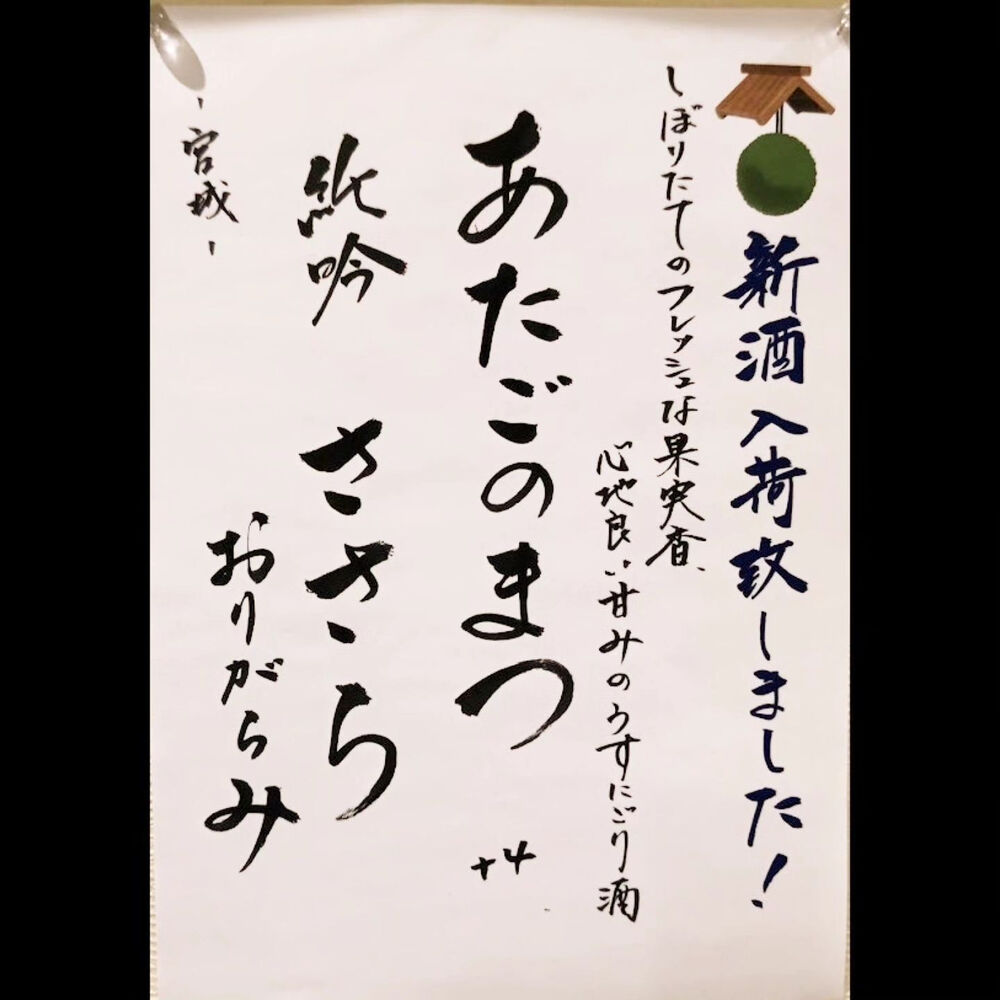 新酒入荷致しました!
しぼりたてのフレッシュな果実香、
心地良い甘みのうすにごり酒
あたごのまつ
+4
純吟 ささら
おりがらみ
-宮城-